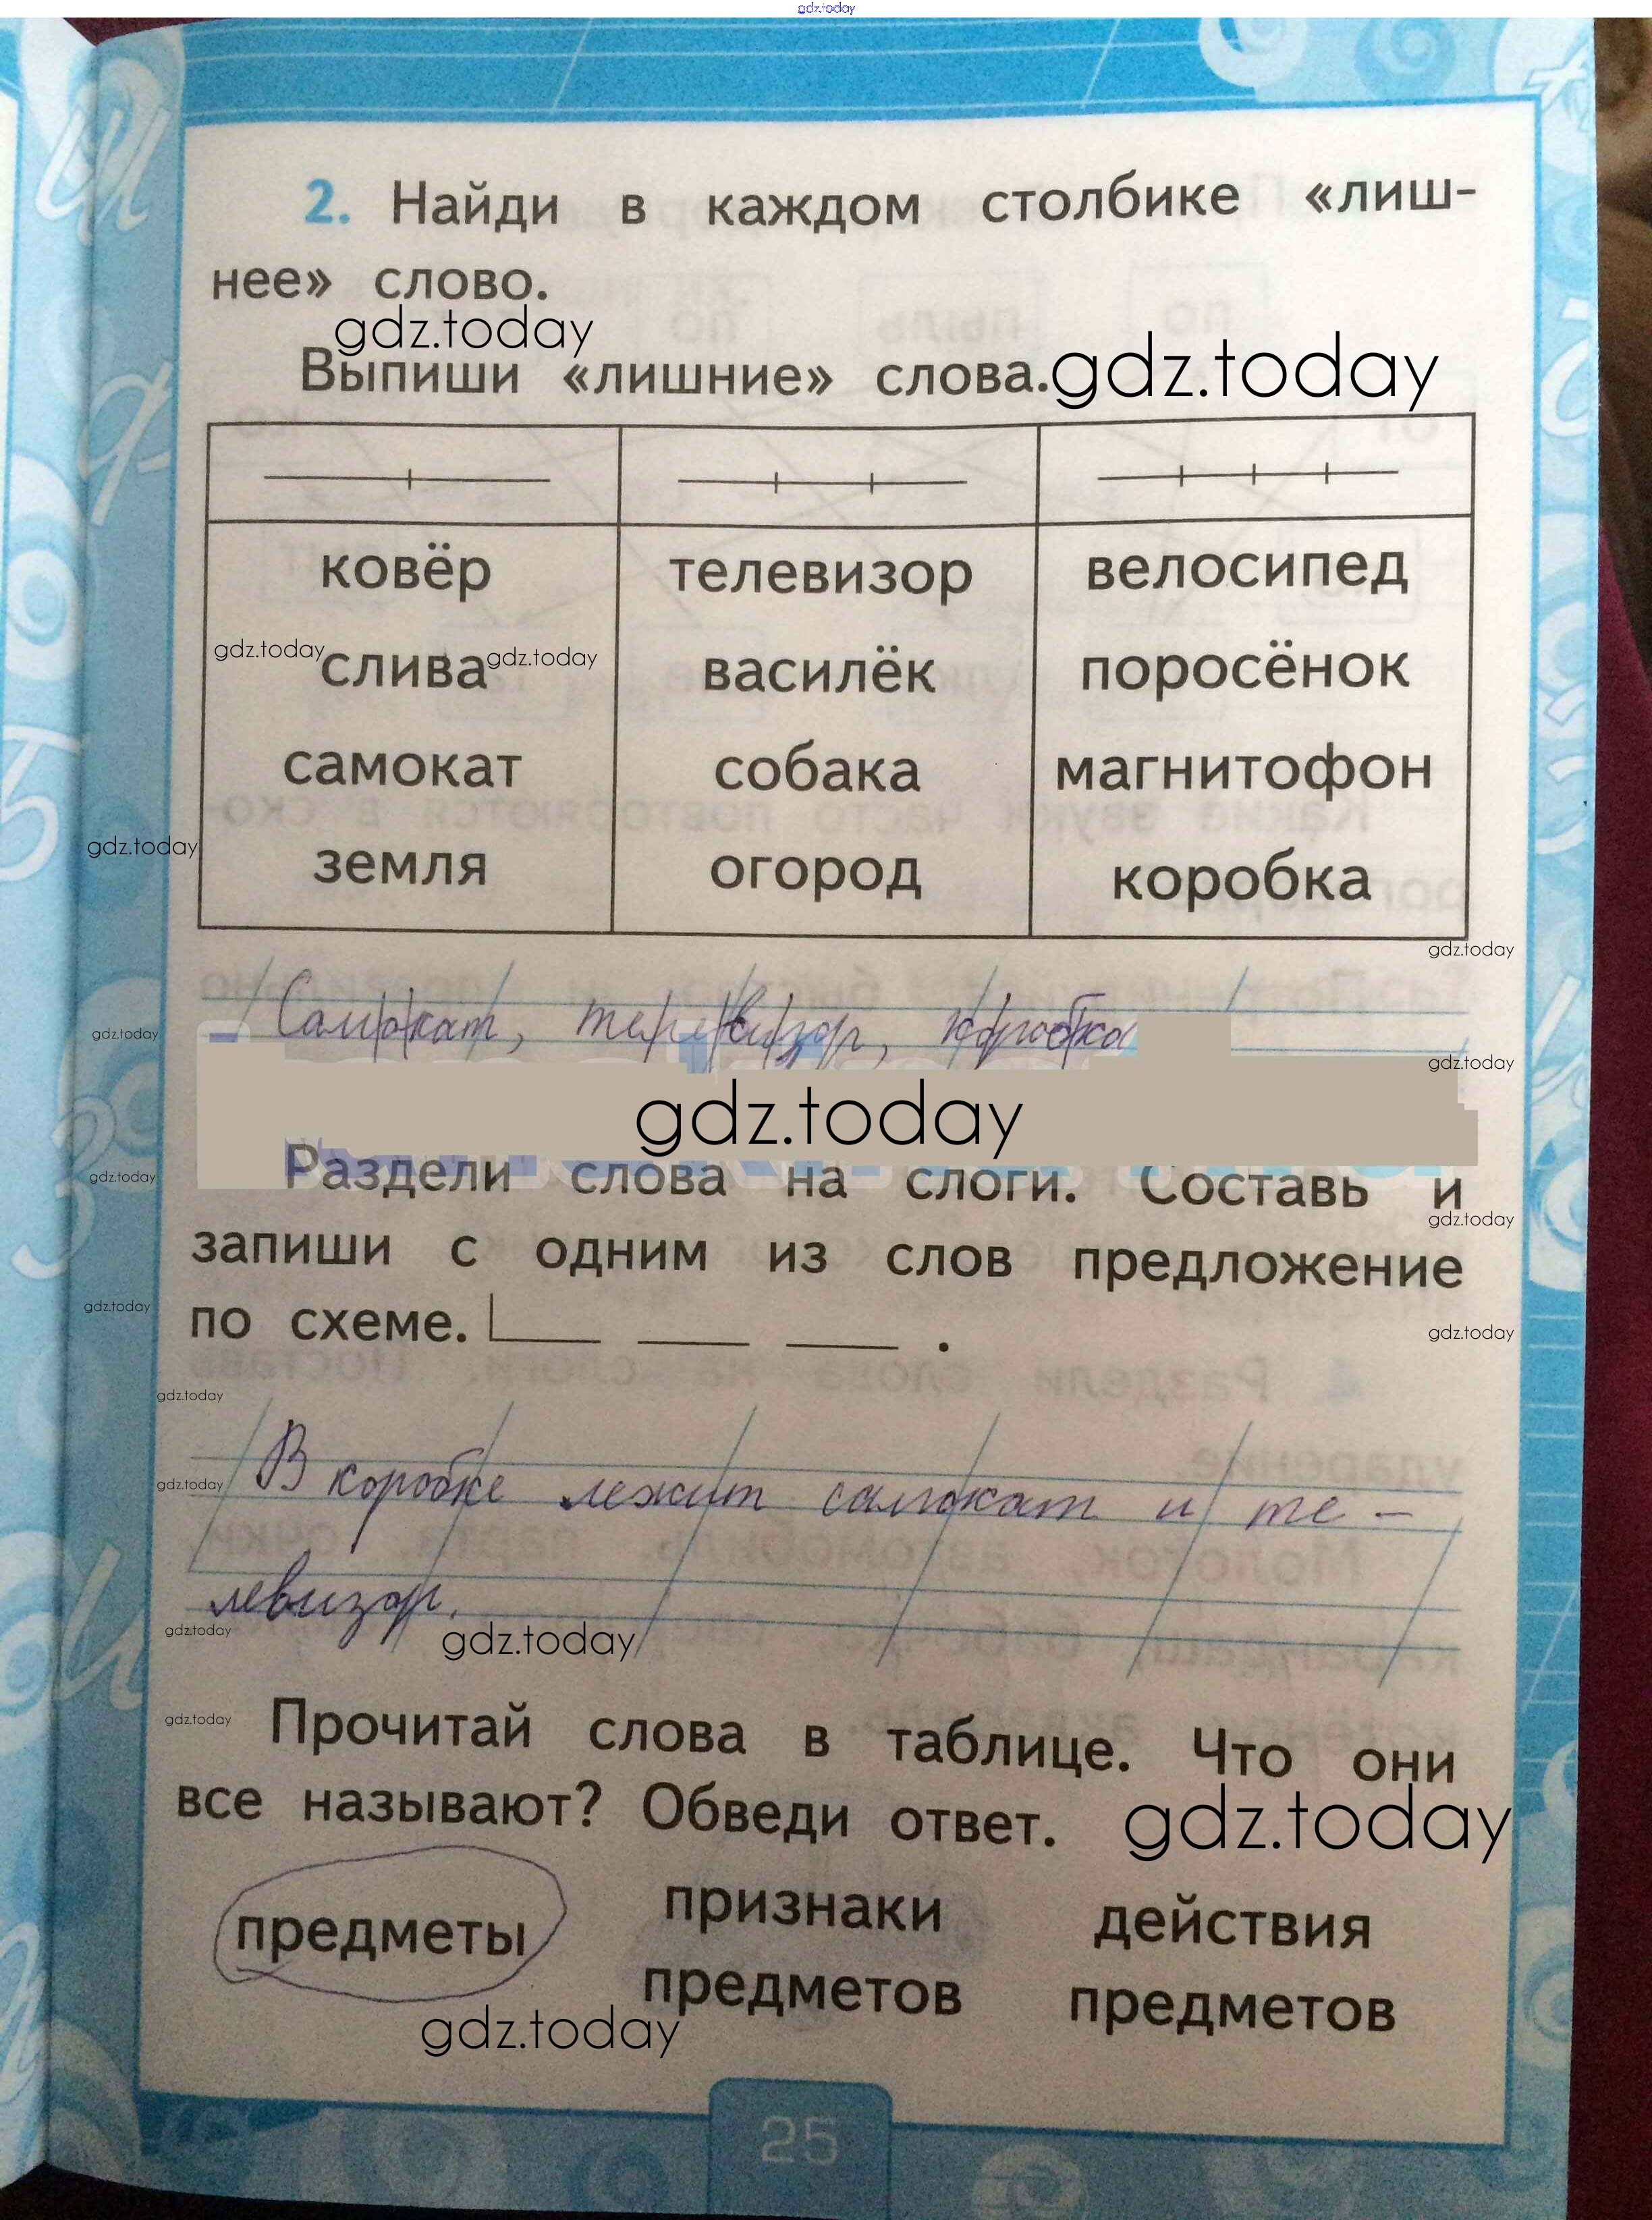 gdz.today
2. Найди в каждом столбике «лиш-
нее» слово.
gdz.today
Выпиши «лишние» слова. gdz.today
ковёр телевизор велосипед
gdz.today слива gdz.today василёк поросёнок
самокат собака магнитофон
gdz.today
земля огород коробка
gdz.today
Самокат, телевизор, коробка
gdz.today
gdz.today
gdz.today
Раздели слова на слоги. Составь и
gdz.today
gdz.today
запиши с одним из слов предложение
gdz.today
по схеме. .
gdz.today
gdz.today
gdz.today В коробке лежит самокат и те-
левизор.
gdz.today gdz.today
gdz.today Прочитай слова в таблице. Что они
все называют? Обведи ответ. gdz.today
предметы признаки действия
предметов предметов
gdz.today
25